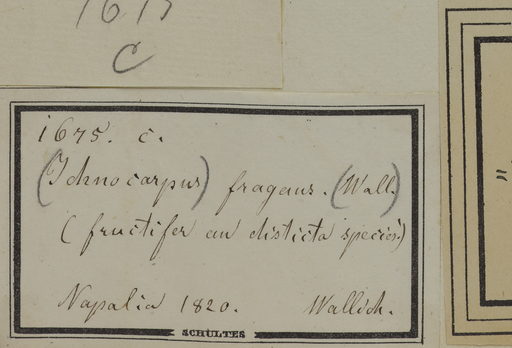 1675
C
1675. c.
(Ichnocarpus) fragans. (Wall.)
(fructifer an disticta species.)
Napalia 1820. Wallich.
SCHULTES